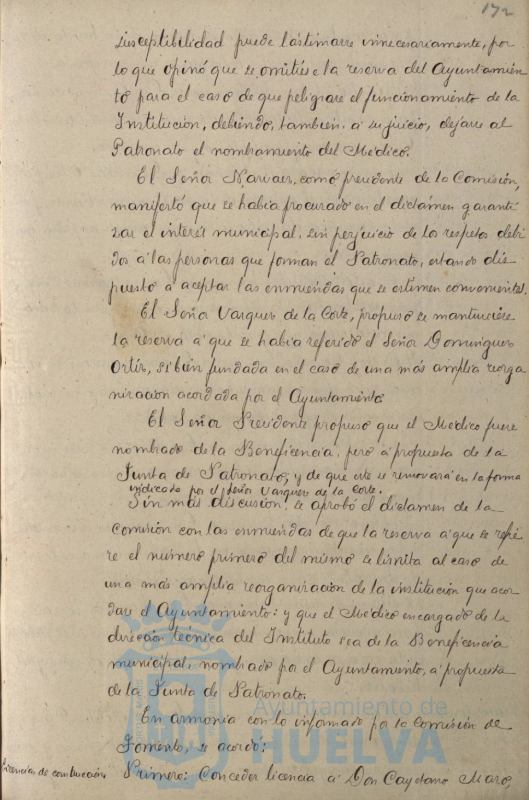 172
susceptibilidad puede lastimarse innecesariamente, por
lo que opinó que se omitiese la reserva del Ayuntamien
to para el caso de que peligrare el funcionamiento de la
Institución, debiendo, también, á su juicio, dejarse al
Patronato el nombramiento del Médico.
El Señor Narvaez, como presidente de la Comisión,
manifestó que se había procurado en el dictámen garanti
zar el interés municipal, sin perjuicio de los respetos debi
dos á las personas que forman el Patronato, estando dis
puesto á aceptar las enmiendas que se estimen convenientes.
El Señor Vazquez de la Corte, propuso se mantuviese
la reserva á que se había referido el Señor Dominguez
Ortiz, si bien fundada en el caso de una más amplia reorga
nización acordada por el Ayuntamiento
El Señor Presidente propuso que el Médico fuere
nombrado de la Beneficencia, pero á propuesta de la
Junta de Patronato, y de que este se removerá en la forma
indicada por el Señor Vazquez de la Corte.
Sin más discusión, se aprobó el dictamen de la
Comisión con las enmiendas de que la reserva á que se refie
re el número primero del mismo se limita al caso de
una más amplia reorganización de la institución que acor
dare el Ayuntamiento: y que el Médico encargado de la
dirección técnica del Instituto sea de la Beneficencia
municipal, nombrado por el Ayuntamiento, á propuesta
de la Junta de Patronato.
En armonía con lo informado por la Comisión de
Fomento, se acordó:
Licencias de construcción. Primero: Conceder licencia á Don Cayetano Maro,
Ayuntamiento de
HUELVA